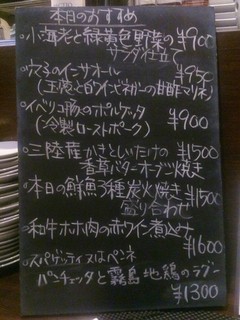 本日のおすすめ
・小海老と緑黄色野菜の
サラダ仕立て ¥900
・穴子のインサオール ¥950
(玉葱と白ワインビネガーの甘酢マリネ)
・イベリコ豚のポルケッタ
(冷製ローストポーク) ¥900
・三陸産かきといたけの ¥1500
香草バターオーブン焼き
・本日の鮮魚3種炭火焼き ¥1500
盛り合わせ
・和牛ホホ肉の赤ワイン煮込み
¥1600
・スパゲッティ又はペンネ
パンチェッタと霧島地鶏のラグー
¥1300